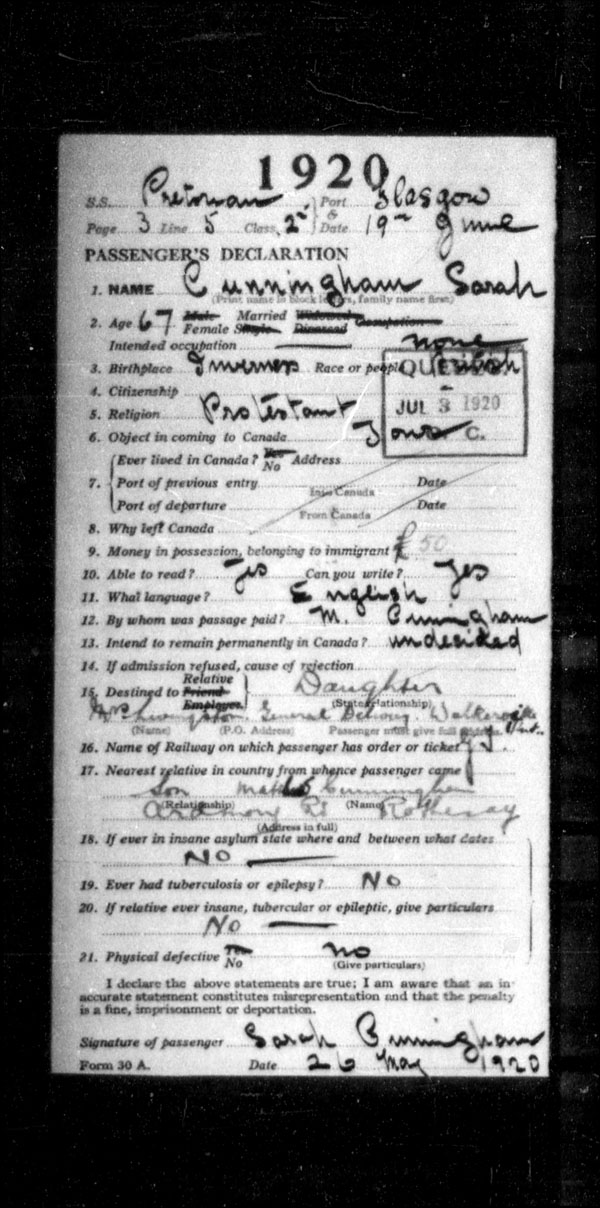 1920
S.S. Pretorian Port Glasgow
Page 3 Line 5 Class 2 & Date 19 June
PASSENGER'S DECLARATION
1. NAME Cunningham Sarah
(Print name in block letters, family name first)
2. Age 67 Male Married Widowed Occupation
Female Single Divorced
Intended occupation none
3. Birthplace Inverness Race or people
QUEBEC
4. Citizenship
JUL 3 1920
5. Religion Protestant
C.
6. Object in coming to Canada
7. Ever lived in Canada? Yes No Address
Port of previous entry Date
Into Canada
Port of departure Date
From Canada
8. Why left Canada
9. Money in possession, belonging to immigrant £ 50
10. Able to read? Yes Can you write? Yes
11. What language? English
12. By whom was passage paid? M. Cunningham
13. Intend to remain permanently in Canada? undesided
14. If admission refused, cause of rejection
15. Destined to Relative Friend Employer Daughter
(State relationship)
Mrs Livingston General Delivery Walkerville Ont.
(Name) (P.O. Address) Passenger must give full address.
16. Name of Railway on which passenger has order or ticket
17. Nearest relative in country from whence passenger came
Son Cunningham
(Relationship) (Name)
Rd Rothesay
(Address in full)
18. If ever in insane asylum state where and between what dates
NO
19. Ever had tuberculosis or epilepsy? NO
20. If relative ever insane, tubercular or epileptic, give particulars
NO
21. Physical defective Yes No no
(Give particulars)
I declare the above statements are true; I am aware that an in-
accurate statement constitutes misrepresentation and that the penalty
is a fine, imprisonment or deportation.
Signature of passenger Sarah Cunningham
Form 30 A. Date 26 May 1920